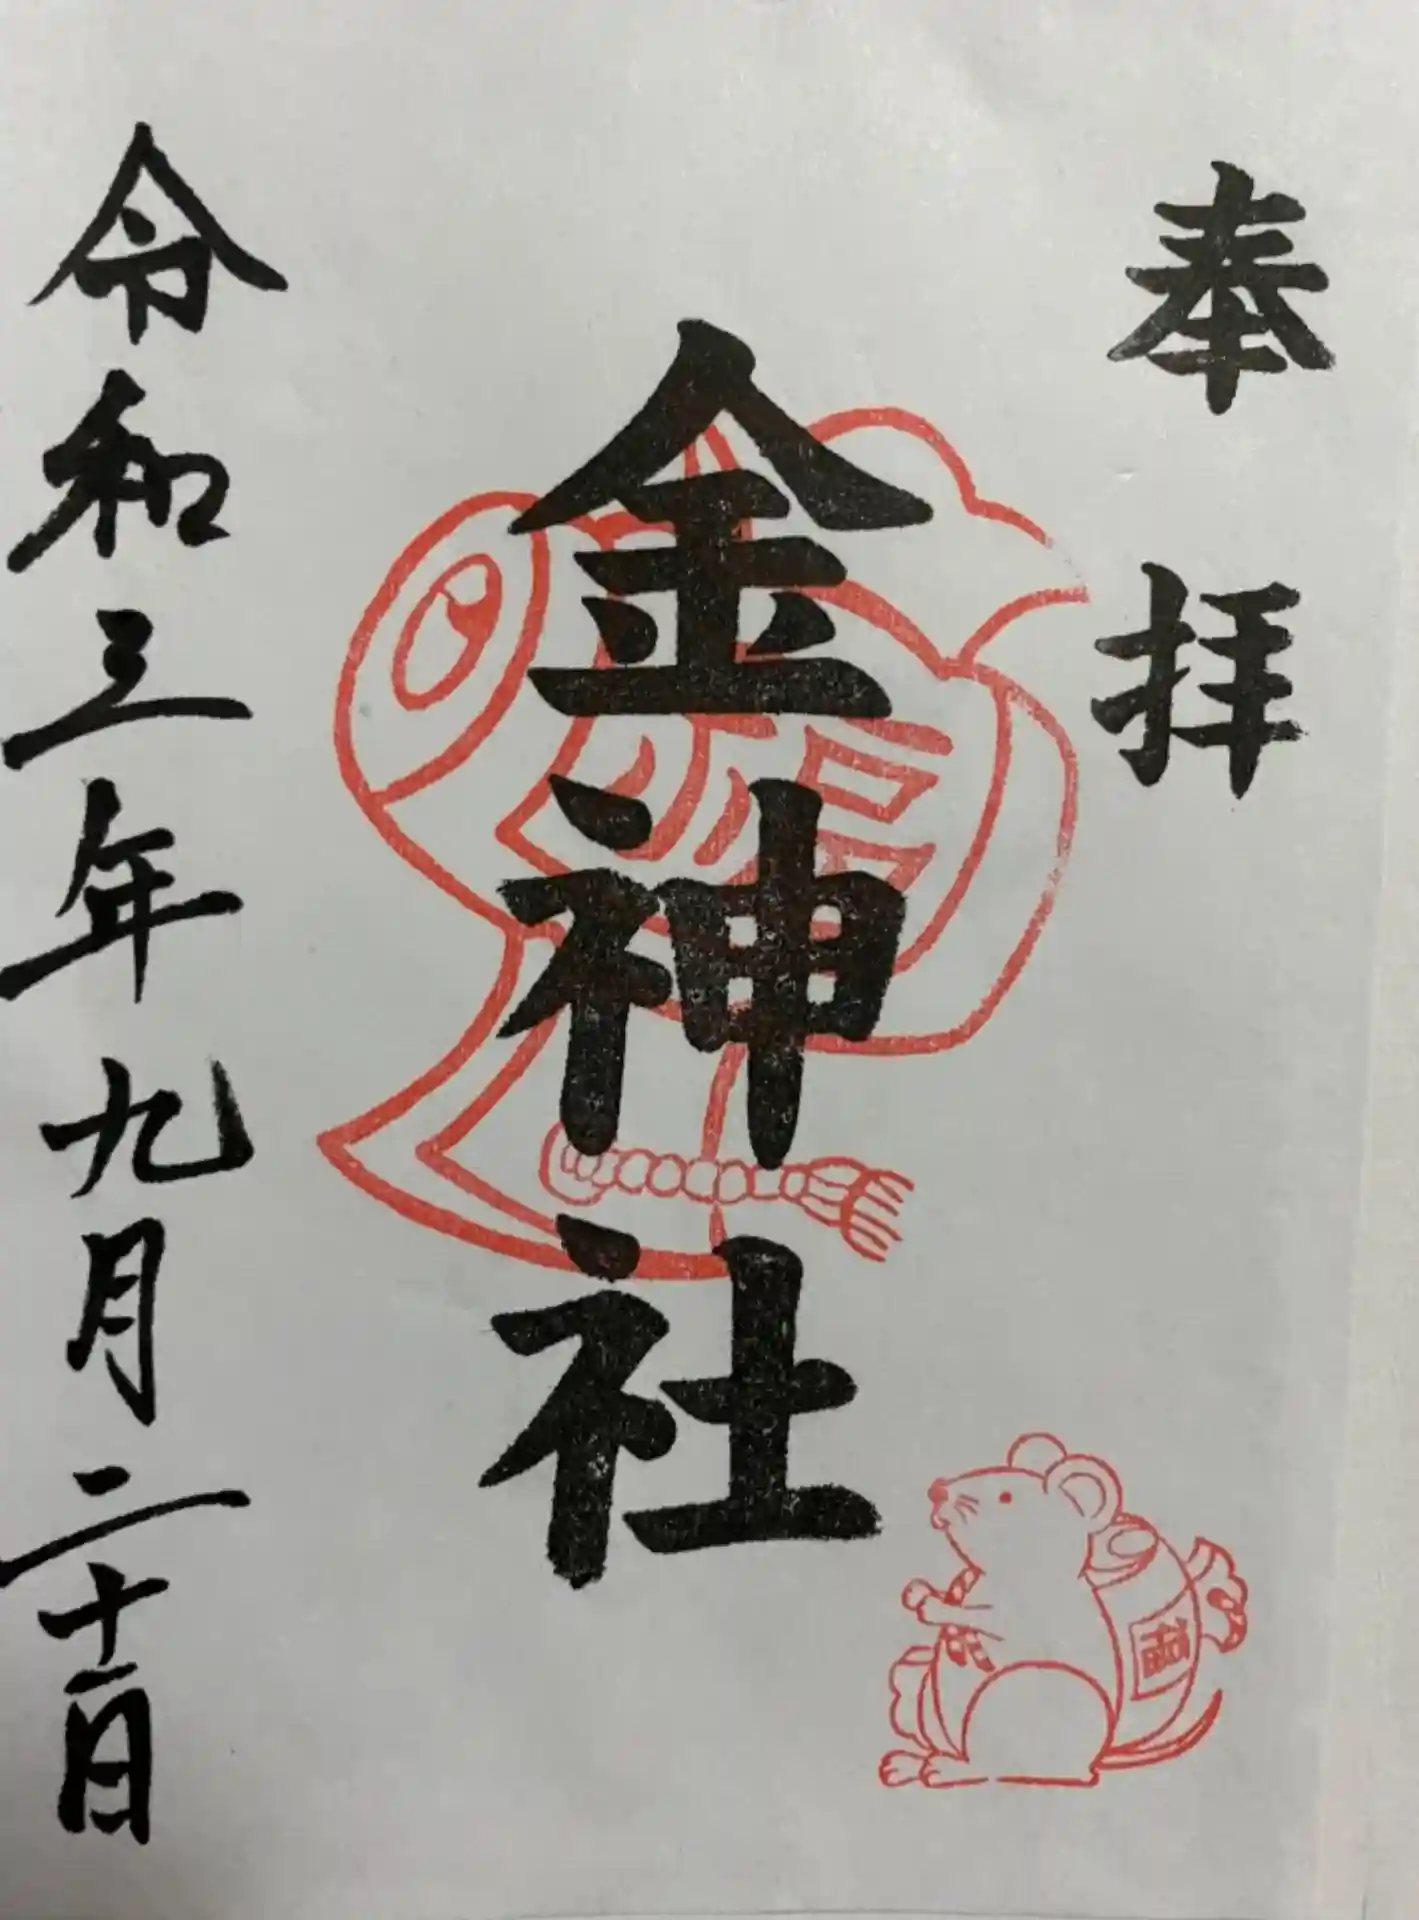 奉拝
金神社
令和三年九月二十一日
福